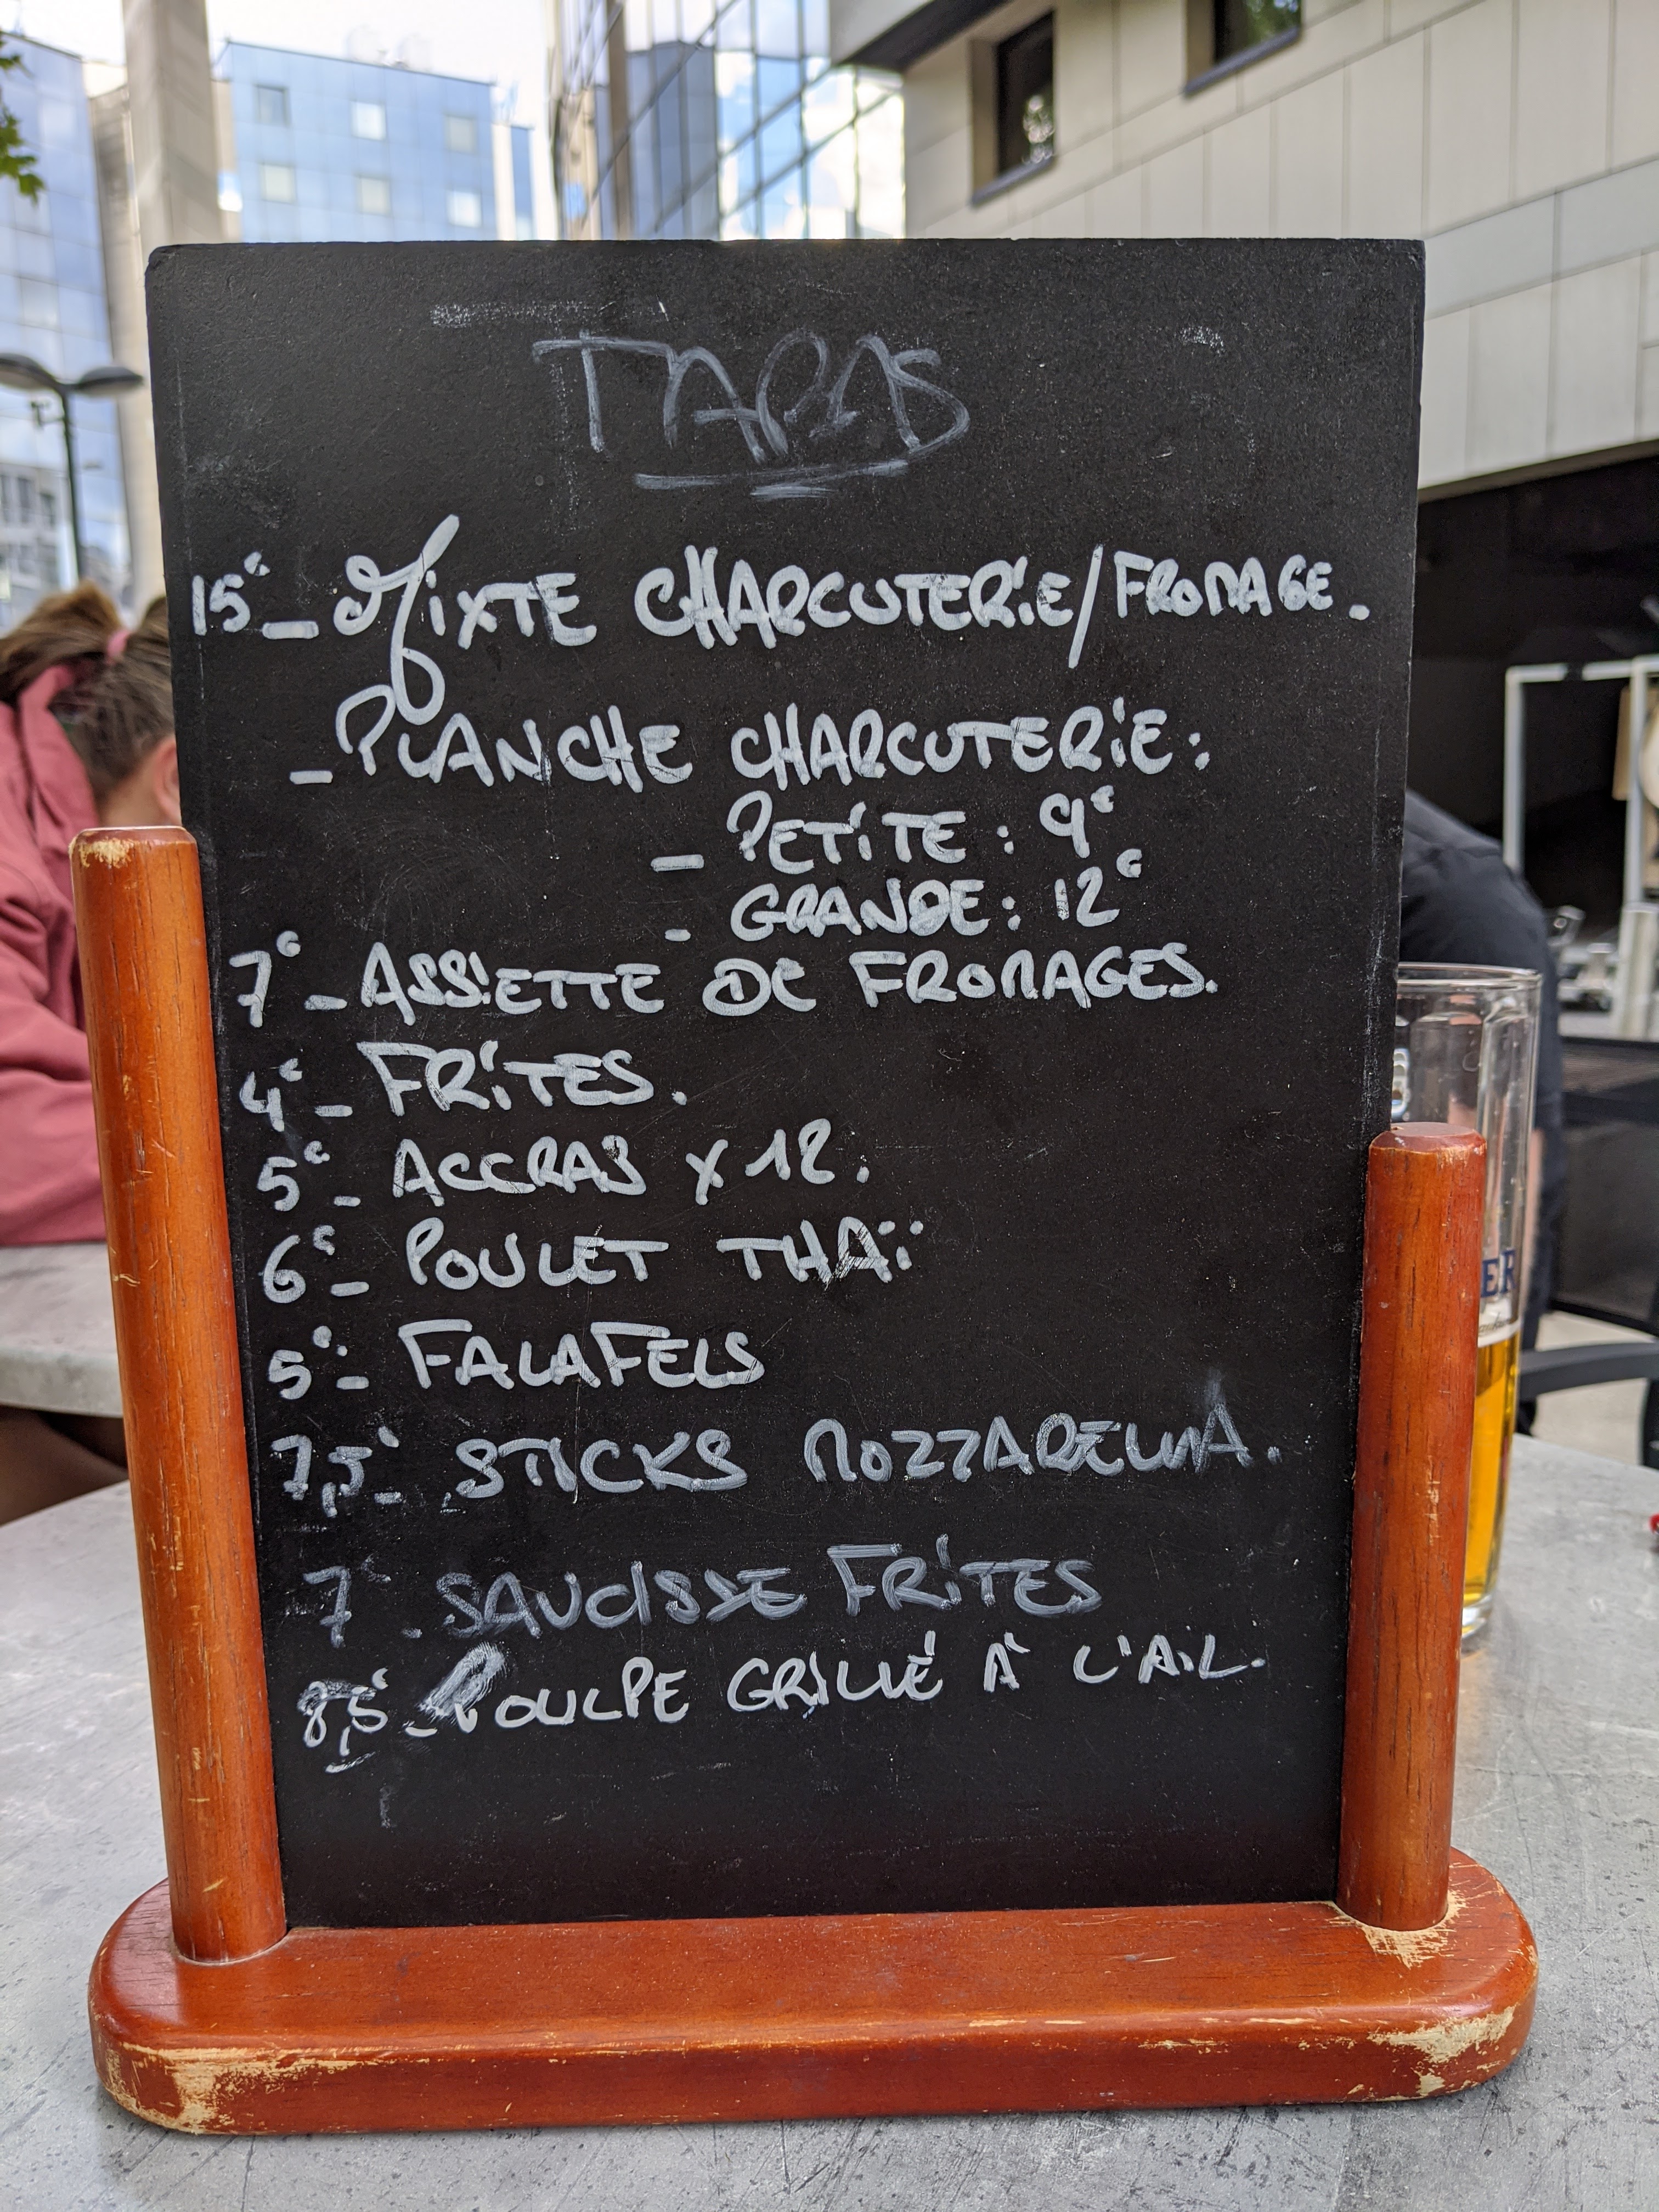 TAPAS
15€ - Mixte CHARCUTERiE/FROMAGE.
- PLANCHE CHARCUTERiE :
- PETiTE : 9€
- GRANDE : 12€
7€ - ASSiETTE DE FROMAGES.
4€ - FRiTES.
5€ - ACCRAS x 12.
6€ - POULET THAï
5€ - FALAFELS
7,5€ - STICKS MOZZARELLA.
7€ - SAUCISSE FRiTES
8,5€ - POULPE GRiLLÉ À L'AiL.
ER